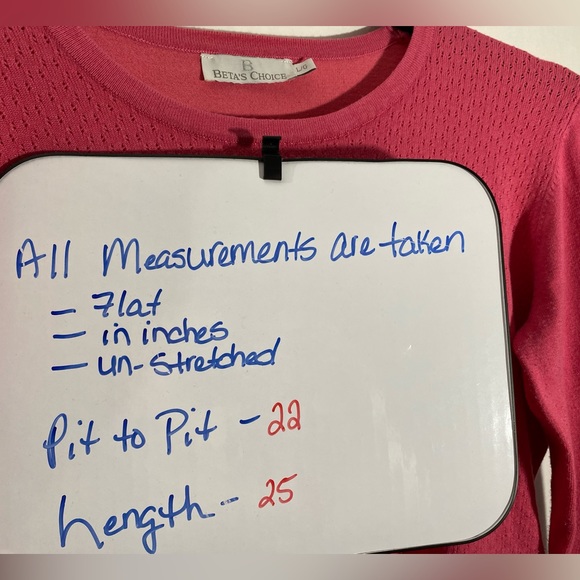 B
BETA'S CHOICE
L/G
All Measurements are taken
- Flat
- in inches
- un-stretched
Pit to Pit - 22
Length - 25